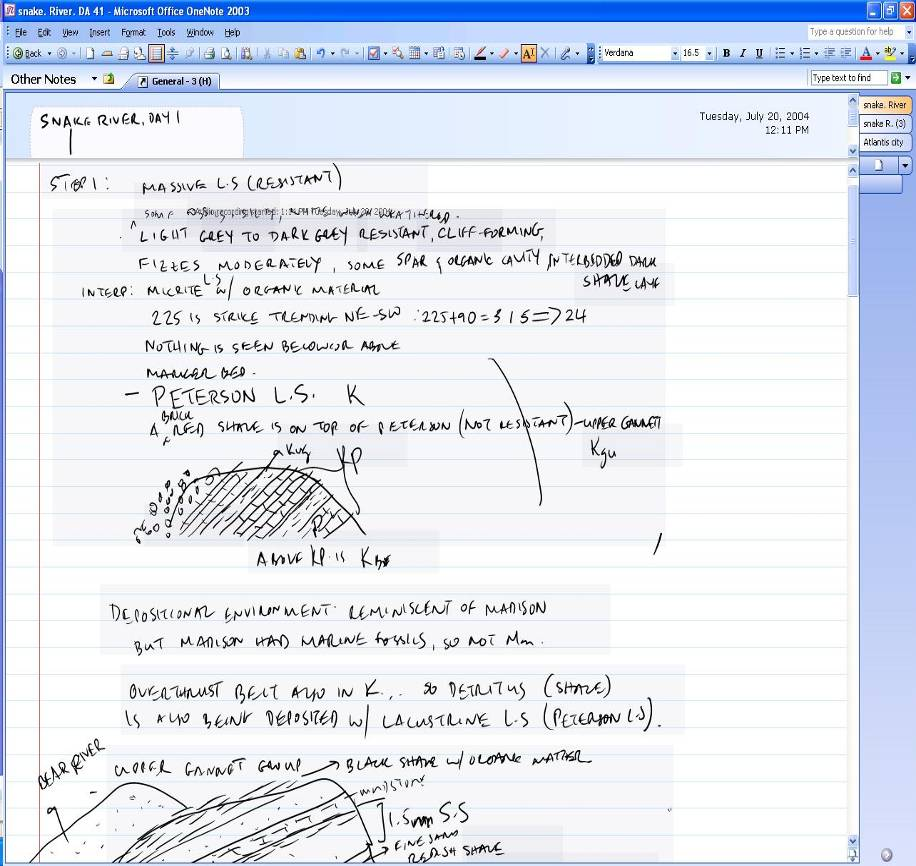 snake. River. DA 41 - Microsoft Office OneNote 2003
File Edit View Insert Format Tools Window Help
Type a question for help
Back
Verdana 16.5 B I U
Other Notes General - 3 (H)
Type text to find
snake. River
snake R. (3)
Atlantis city
SNAKE RIVER, DAY 1
Tuesday, July 20, 2004
12:11 PM
STOP 1: MASSIVE L.S (RESISTANT)
SOME
LIGHT GREY TO DARK GREY RESISTANT, CLIFF-FORMING,
FIZZES MODERATELY, SOME SPAR & ORGANIC CAVITY INTERBEDDED DARK
SHALE
INTERP: MICRITE L.S W/ ORGANIC MATERIAL
225 IS STRIKE TRENDING NE-SW : 225+90=315=>24
NOTHING IS SEEN BELOW OR ABOVE
MARKER BED.
- PETERSON L.S. K
A BRICK RED SHALE IS ON TOP OF PETERSON (NOT RESISTANT) - UPPER GANNETT
Kgu
KP
ABOVE KP IS
DEPOSITIONAL ENVIRONMENT: REMINISCENT OF MADISON
BUT MADISON HAD MARINE FOSSILS, SO NOT Mm.
OVERTHRUST BELT ALSO IN K... SO DETRITUS (SHALE)
IS ALSO BEING DEPOSITED W/ LACUSTRINE L.S (PETERSON L.S).
BEAR RIVER
UPPER GANNET GROUP → BLACK SHALE W/ ORGANIC MATTER
1.5mm S.S
FINE SAND
REDISH SHALE